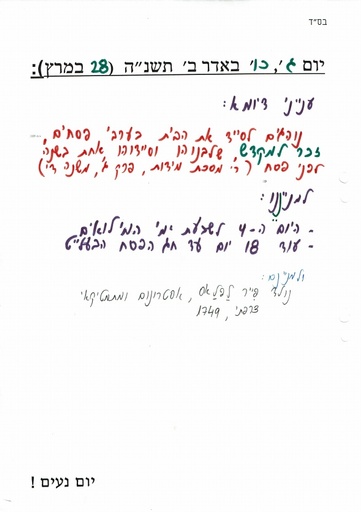 בס״ד
יום ג׳, כו׳ באדר ב׳ תשנ״ה (28 במרץ):
ענייני דיומא:
נוהגים לסייד את הבית בערבי פסחים,
זכר למקדש שלבנוהו וסיידוהו אחת בשנה
לפני פסח (ר׳ מסכת מידות, פרק ג׳, משנה ד׳)
למניננו:
- היום ה-4 לשבעת ימי המילואים
- עוד 18 יום עד חג הפסח הבעל״ט
ולמנינם:
נולד פייר לַפְּלַאס, אסטרונום ומתמטיקאי
צרפתי, 1749
יום נעים !